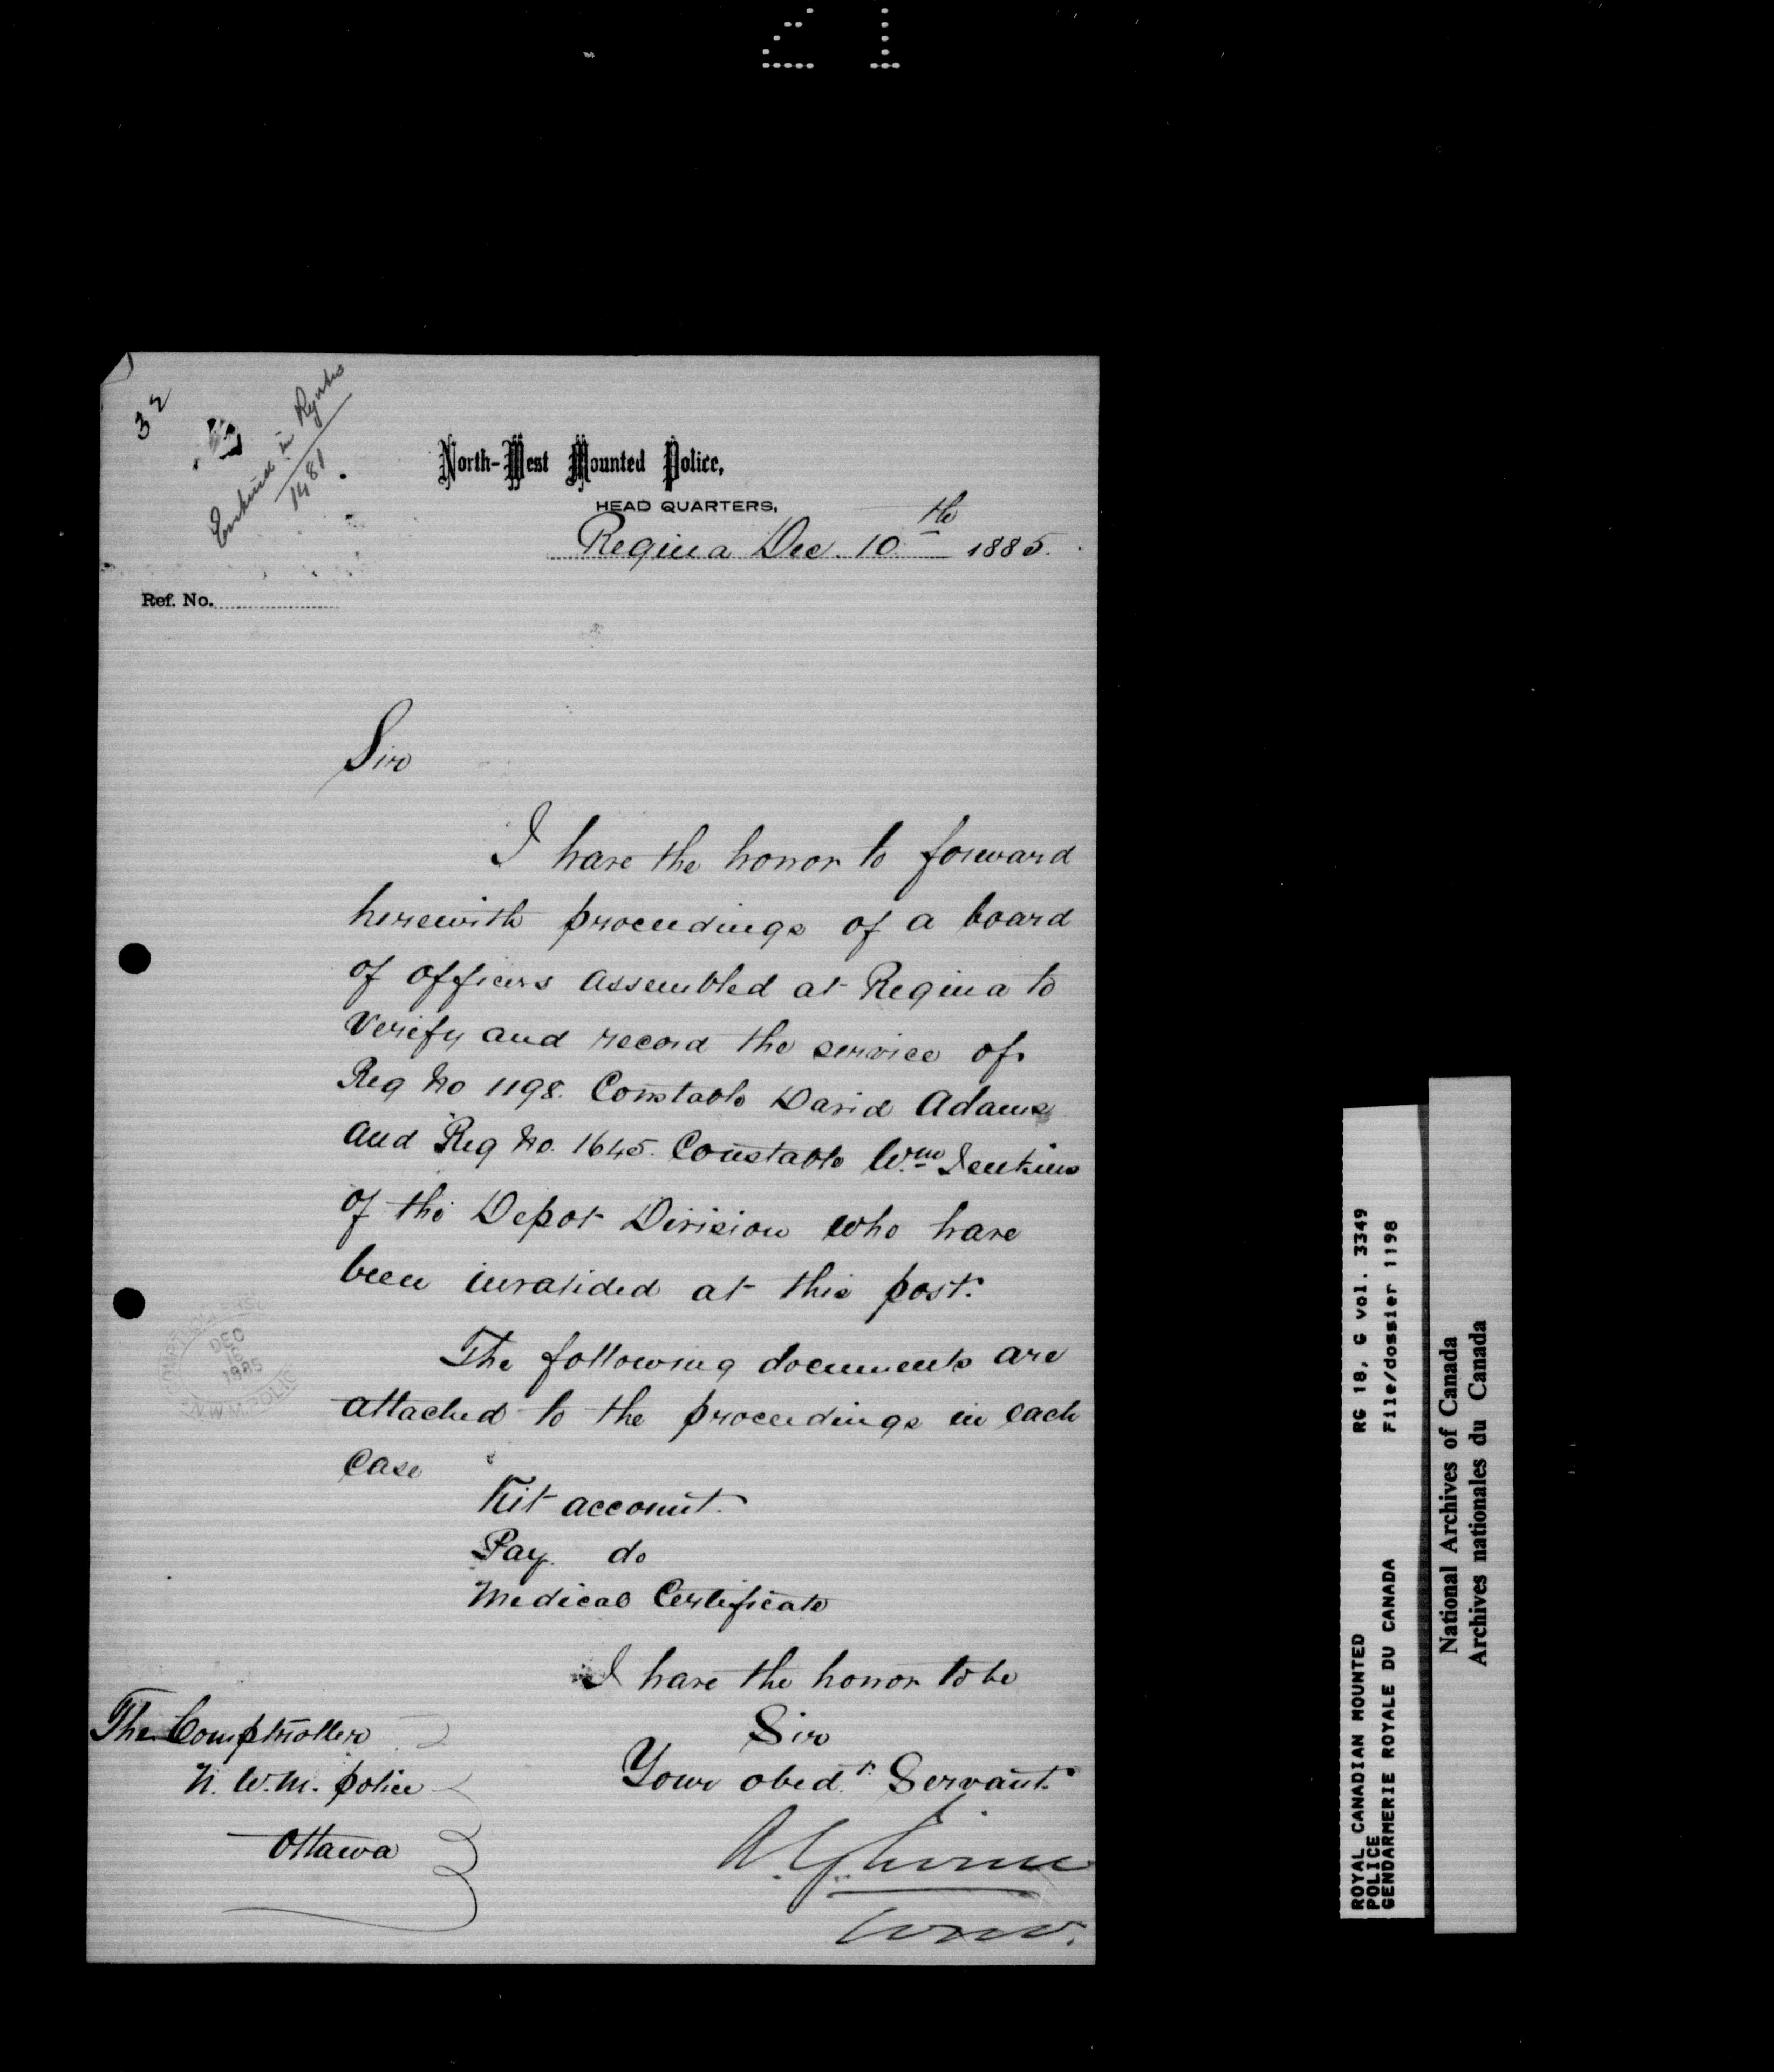 21
32
Enclosure in Regtal
1481
North-West Mounted Police,
HEAD QUARTERS,
Regina Dec. 10th 1885.
Ref. No.
Sir
I have the honor to forward
herewith proceedings of a board
of officers assembled at Regina to
verify and record the service of
Reg No 1198. Constable David Adams
and Reg No. 1645. Constable Wm Jenkins
of the Depot Division who have
been invalided at this post.
The following documents are
attached to the proceedings in each
case
Kit account.
Pay do
Medical Certificate
I have the honor to be
Sir
Your obedt Servant
A. G. Irvine
Comr.
The Comptroller
N. W. M. police
Ottawa
COMPTROLLER'S
DEC
1885
N.W.M. POLICE
ROYAL CANADIAN MOUNTED RG 18, G vol. 3349
POLICE
GENDARMERIE ROYALE DU CANADA File/dossier 1198
National Archives of Canada
Archives nationales du Canada